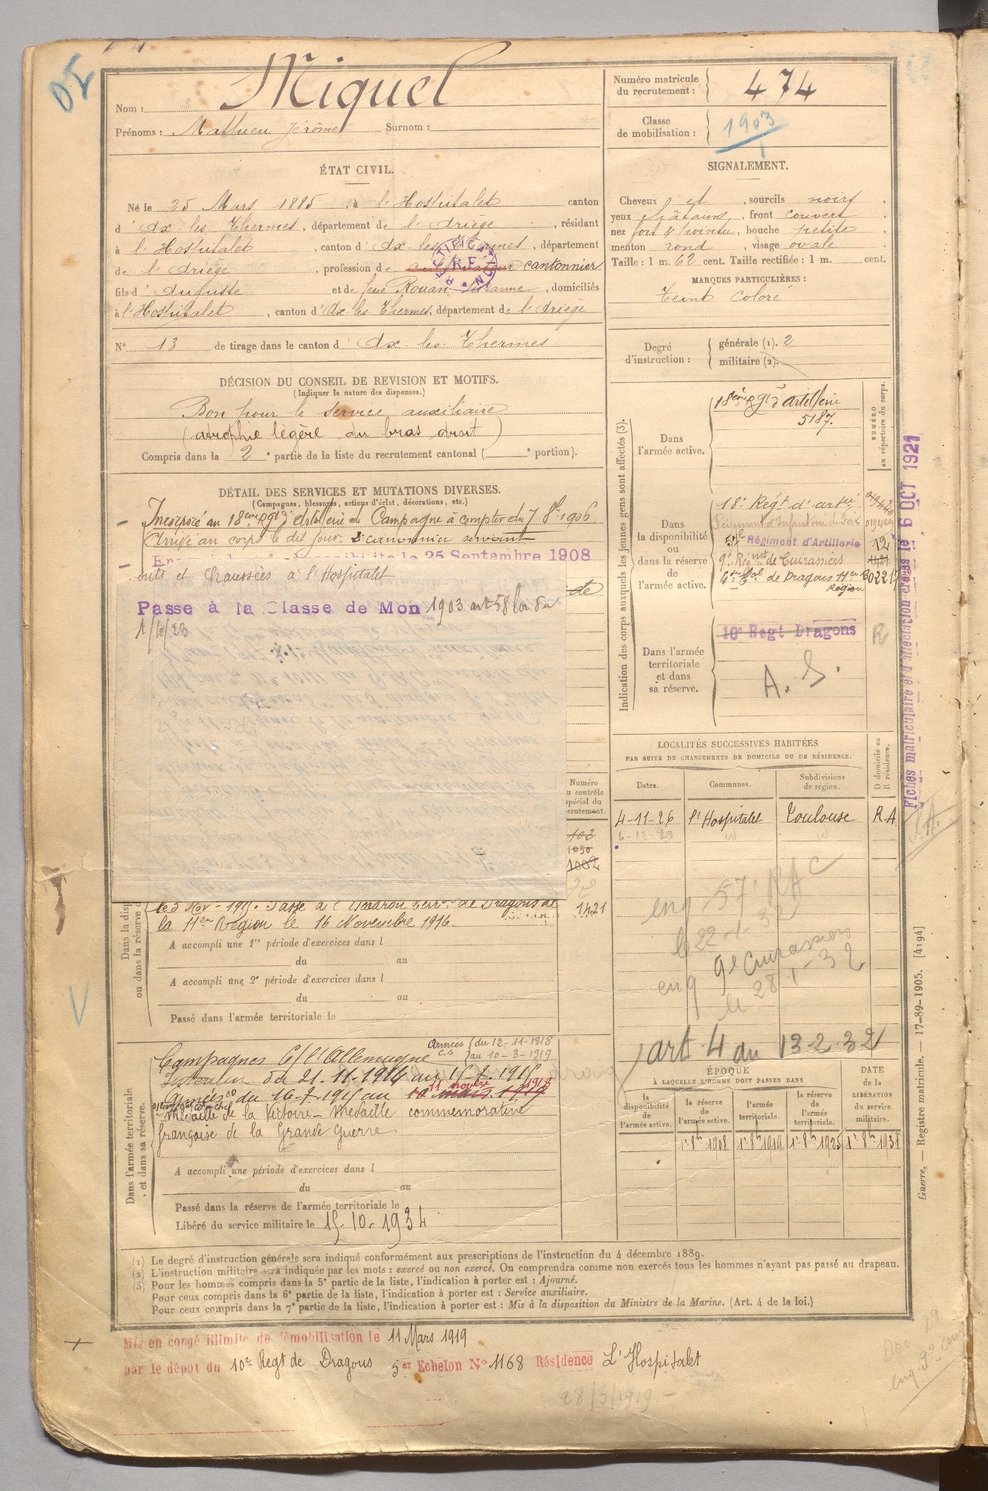 Nom : Miquel
Prénoms : Mathieu Jérôme Surnom :
Numéro matricule du recrutement : 474
Classe de mobilisation : 1903
ÉTAT CIVIL.
Né le 25 Mars 1885, à l'Hospitalet canton
d'Ax les Thermes, département de l'Ariège, résidant
à l'Hospitalet, canton d'Ax les Thermes, département
de l'Ariège, profession de cultivateur cantonnier
fils d'Auguste et de feue Rouan Suzanne, domiciliés
à l'Hospitalet, canton d'Ax les Thermes, département de l'Ariège
N° 13 de tirage dans le canton d'Ax les Thermes
SIGNALEMENT.
Cheveux et, sourcils noirs
yeux châtains, front couvert
nez fort & pointu, bouche petite
menton rond, visage ovale
Taille : 1 m. 62 cent. Taille rectifiée : 1 m. cent.
MARQUES PARTICULIÈRES :
Teint coloré
Degré d'instruction : générale (1). 2
militaire (2).
DÉCISION DU CONSEIL DE REVISION ET MOTIFS.
(Indiquer la nature des dispenses.)
Bon pour le service auxiliaire
(atrophie légère du bras droit)
Compris dans la 2e partie de la liste du recrutement cantonal ( e portion).
DÉTAIL DES SERVICES ET MUTATIONS DIVERSES.
(Campagnes, blessures, actions d'éclat, décorations, etc.)
Incorporé au 18ème Rgt d'Artillerie de Campagne à compter du 7 8bre 1906.
Arrivé au corps le dit jour. 2e canonnier servant
25 Septembre 1908
Ponts et Chaussées à l'Hospitalet
Passé à la Classe de Mon 1903 art 58 loi du
1/4/23
Indication des corps auxquels les jeunes gens sont affectés (3).
Dans l'armée active.
18ème Rgt d'artillerie
5187.
NUMÉRO au répertoire du corps.
Dans la disponibilité ou dans la réserve de l'armée active.
18e Régt d'artie
Régiment d'Artillerie 12
9e Régiment de Cuirassiers 1421
de Dragons 11e Région
Dans l'armée territoriale et dans sa réserve.
10e Regt Dragons
A. S.
R
Fiches matriculaire et d'affectation créées le 6 OCT 1921
LOCALITÉS SUCCESSIVES HABITÉES
PAR SUITE DE CHANGEMENTS DE DOMICILE OU DE RÉSIDENCE.
Dates. Communes. Subdivisions de région. D domicile ou R résidence.
4-11-26 l'Hospitalet Toulouse RA
Numéro au contrôle spécial du recrutement.
103
1030
1082
1421
eng 57e RAC
le 22-1-32
eng 9e Cuirassiers
le 28-1-32
art 4 du 13-2-32
le 5 Nov-1915. Passé à l'Escadron Terr. de Dragons de
la 11ème Région le 16 Novembre 1916.
A accompli une 1re période d'exercices dans l
du au
A accompli une 2e période d'exercices dans l
du au
Passé dans l'armée territoriale le
Dans l'armée territoriale et dans sa réserve.
Campagnes c/ l'Allemagne Armées { du 12-11-1918 au 10-3-1919
Intérieur du 21-11-1914 au 15-7-1915
Armées du 16-7-1915 au 10 mars 1919 11 novbre 1918
Médaille de la Victoire - Médaille commémorative
française de la Grande Guerre
A accompli une période d'exercices dans l
du au
Passé dans la réserve de l'armée territoriale le
Libéré du service militaire le 15-10-1934
ÉPOQUE
À LAQUELLE L'HOMME DOIT PASSER DANS
la disponibilité de l'armée active.
la réserve de l'armée active.
l'armée territoriale.
la réserve de l'armée territoriale.
DATE de la LIBÉRATION du service militaire.
1er 8bre 1908 1er 8bre 1919 1er 8bre 1925 1er 8bre 1931
Guerre. — Registre matricule. — 17-89-1905. [4194]
(1) Le degré d'instruction générale sera indiqué conformément aux prescriptions de l'instruction du 4 décembre 1889.
(2) L'instruction militaire sera indiquée par les mots : exercé ou non exercé. On comprendra comme non exercés tous les hommes n'ayant pas passé au drapeau.
(3) Pour les hommes compris dans la 5e partie de la liste, l'indication à porter est : Ajourné.
Pour ceux compris dans la 6e partie de la liste, l'indication à porter est : Service auxiliaire.
Pour ceux compris dans la 7e partie de la liste, l'indication à porter est : Mis à la disposition du Ministre de la Marine. (Art. 4 de la loi.)
Mis en congé illimité de démobilisation le 11 Mars 1919
par le dépôt du 10e Regt de Dragons 5er Echelon N° 1168 Résidence L'Hospitalet
28/3/1919